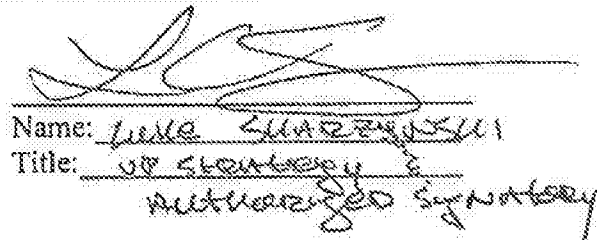 Name: LUKE SKARZYNSKI
Title: VP STRATEGY &
AUTHORIZED SIGNATORY